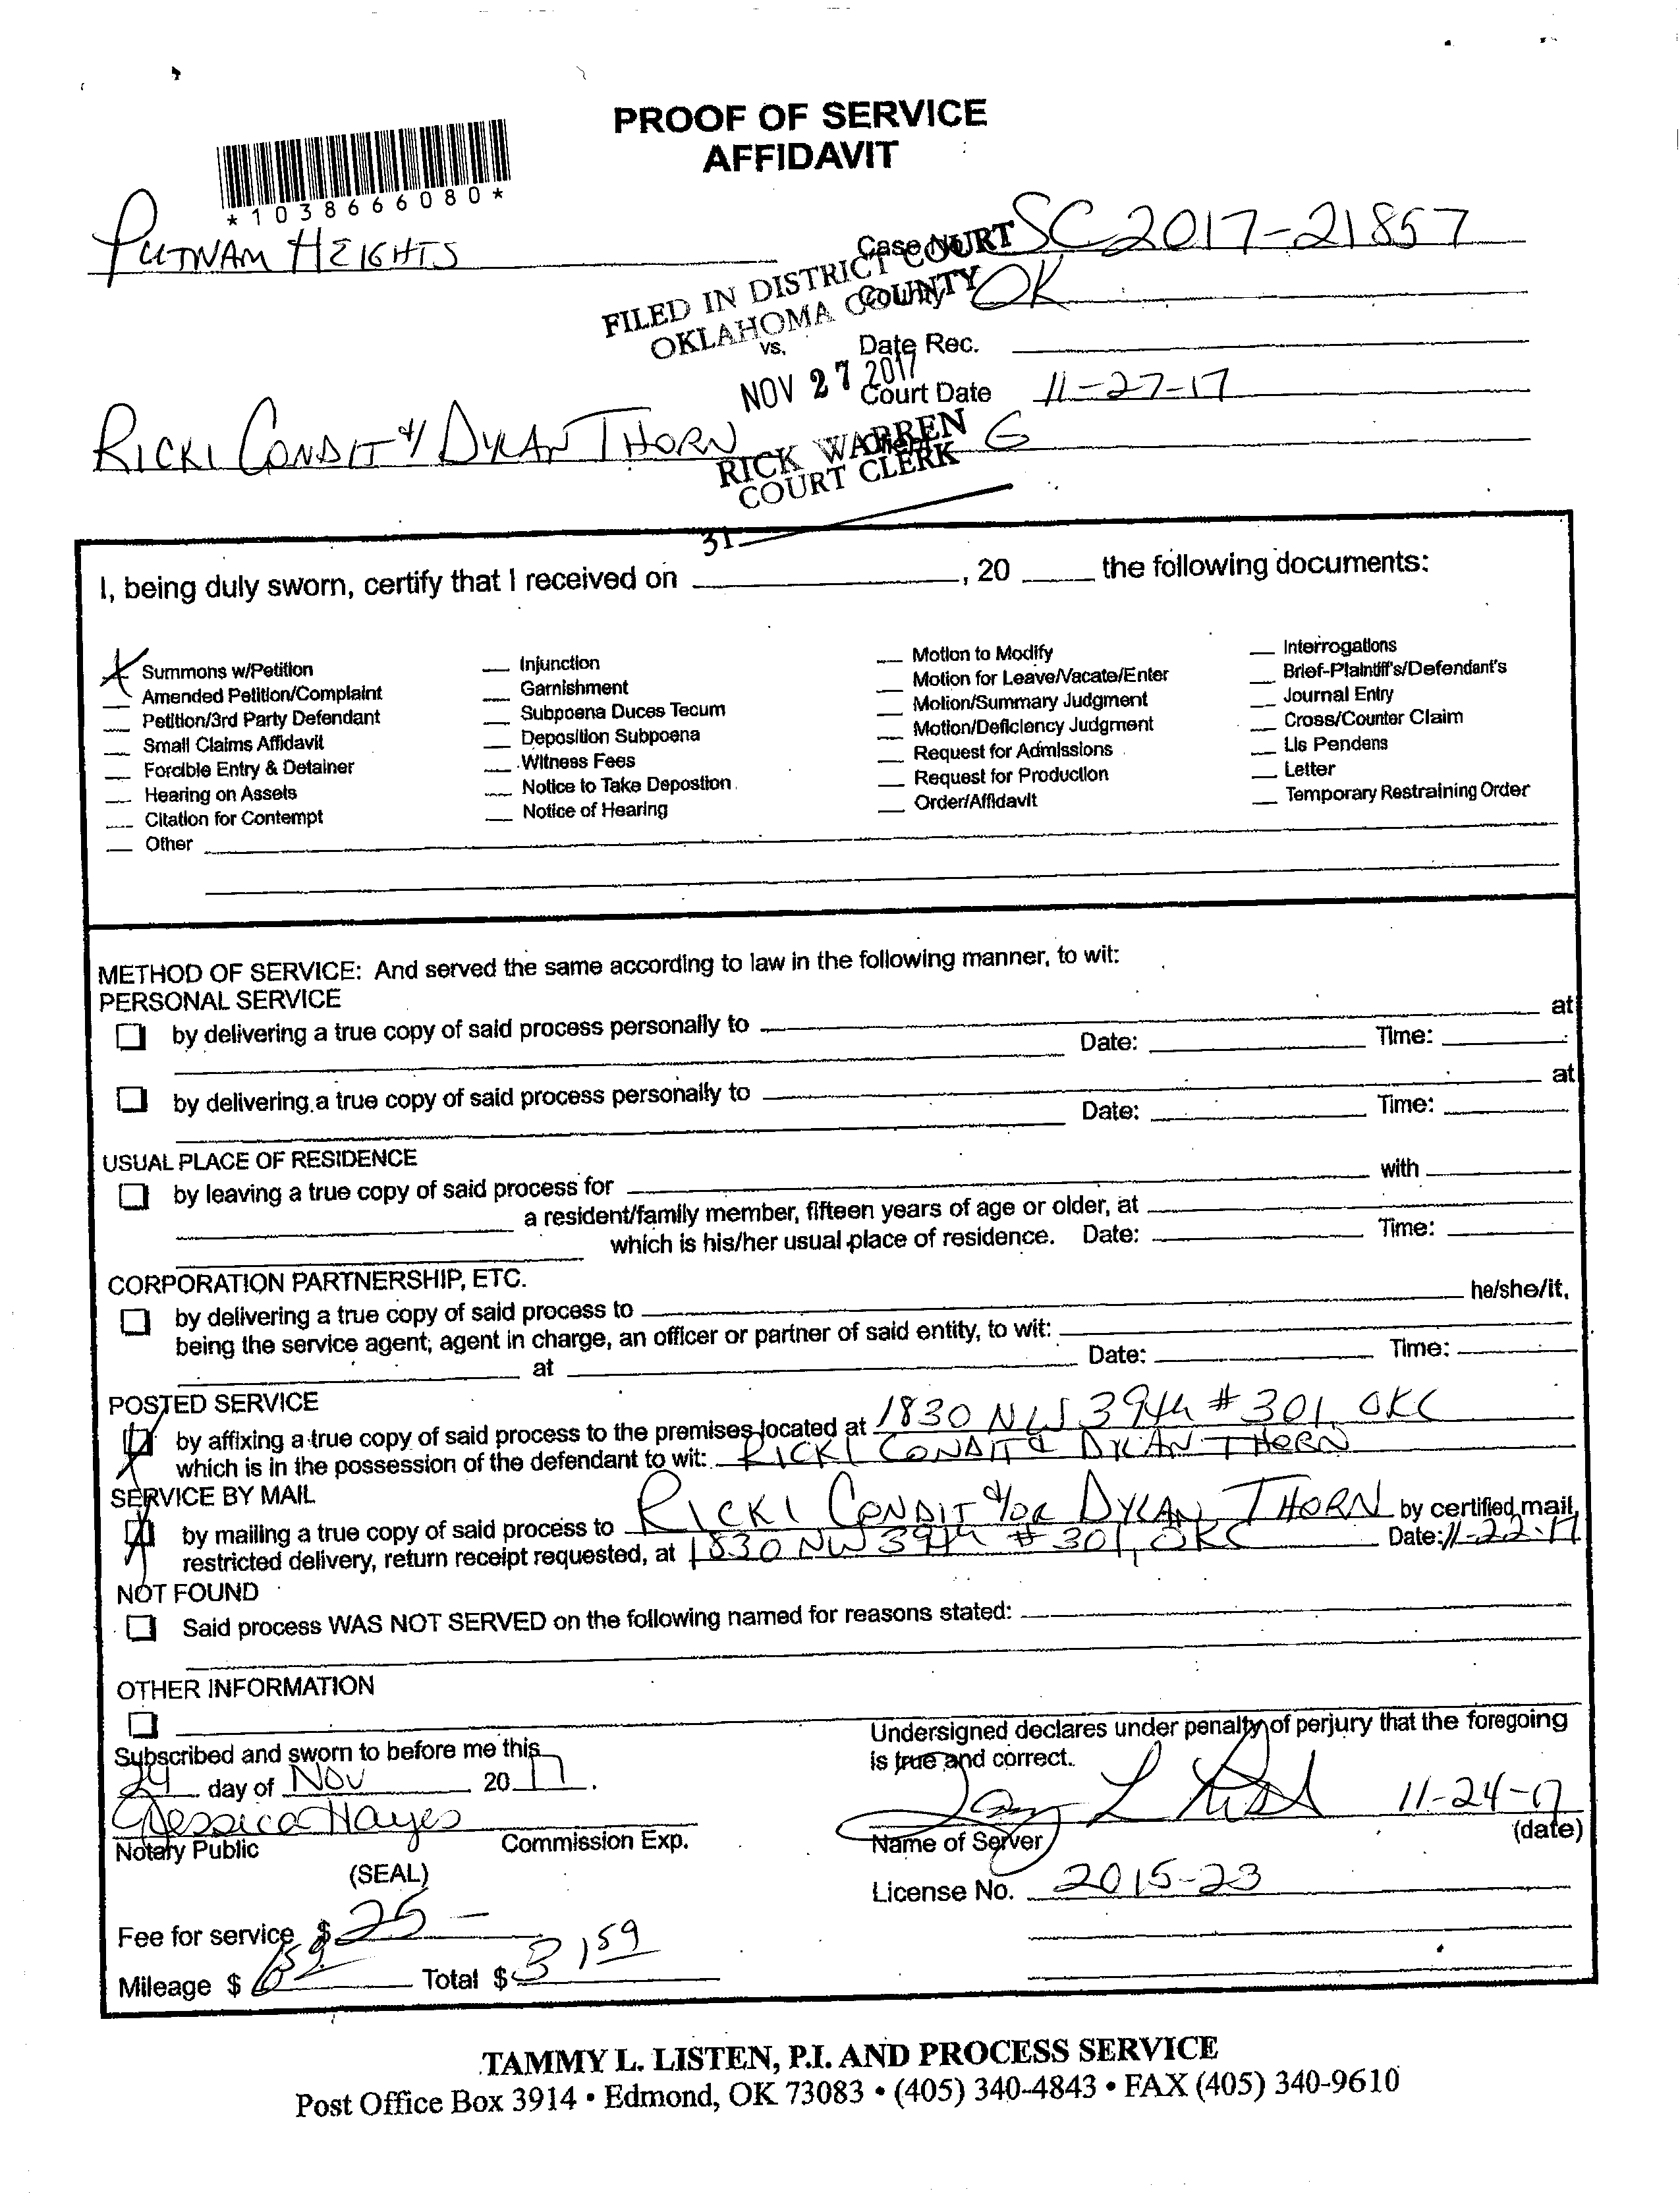 PROOF OF SERVICE
AFFIDAVIT
*1038666080*
PUTNAM HEIGHTS
Case No. SC 2017-21857
County OK
FILED IN DISTRICT COURT
OKLAHOMA COUNTY
vs.
Date Rec.
NOV 27 2017
Court Date 11-27-17
RICKI CONDIT &/ DYLAN THORN
Client G
RICK WARREN
COURT CLERK
31
I, being duly sworn, certify that I received on ____, 20 ____ the following documents:
X Summons w/Petition
Amended Petition/Complaint
Petition/3rd Party Defendant
Small Claims Affidavit
Forcible Entry & Detainer
Hearing on Assets
Citation for Contempt
Other
Injunction
Garnishment
Subpoena Duces Tecum
Deposition Subpoena
Witness Fees
Notice to Take Depostion
Notice of Hearing
Motion to Modify
Motion for Leave/Vacate/Enter
Motion/Summary Judgment
Motion/Deficiency Judgment
Request for Admissions
Request for Production
Order/Affidavit
Interrogations
Brief-Plaintiff's/Defendant's
Journal Entry
Cross/Counter Claim
Lis Pendens
Letter
Temporary Restraining Order
METHOD OF SERVICE: And served the same according to law in the following manner, to wit:
PERSONAL SERVICE
by delivering a true copy of said process personally to ____ at
Date: ____ Time: ____
by delivering a true copy of said process personally to ____ at
Date: ____ Time: ____
USUAL PLACE OF RESIDENCE
by leaving a true copy of said process for ____ with ____
a resident/family member, fifteen years of age or older, at ____
which is his/her usual place of residence. Date: ____ Time: ____
CORPORATION PARTNERSHIP, ETC.
by delivering a true copy of said process to ____ he/she/it,
being the service agent; agent in charge, an officer or partner of said entity, to wit: ____
at ____ Date: ____ Time: ____
POSTED SERVICE
X by affixing a true copy of said process to the premises located at 1830 NW 39th #301, OKC
which is in the possession of the defendant to wit: RICKI CONDIT & DYLAN THORN
SERVICE BY MAIL
X by mailing a true copy of said process to RICKI CONDIT &/OR DYLAN THORN by certified mail,
restricted delivery, return receipt requested, at 1830 NW 39th #301, OKC Date: 11-22-17
NOT FOUND
Said process WAS NOT SERVED on the following named for reasons stated: ____
OTHER INFORMATION
Subscribed and sworn to before me this
24 day of Nov 2017.
Jessica Hayes
Notary Public Commission Exp.
(SEAL)
Undersigned declares under penalty of perjury that the foregoing
is true and correct.
11-24-17
Name of Server (date)
License No. 2015-23
Fee for service $ 25-
Mileage $ 6 59 Total $ 31 59
TAMMY L. LISTEN, P.I. AND PROCESS SERVICE
Post Office Box 3914 • Edmond, OK 73083 • (405) 340-4843 • FAX (405) 340-9610